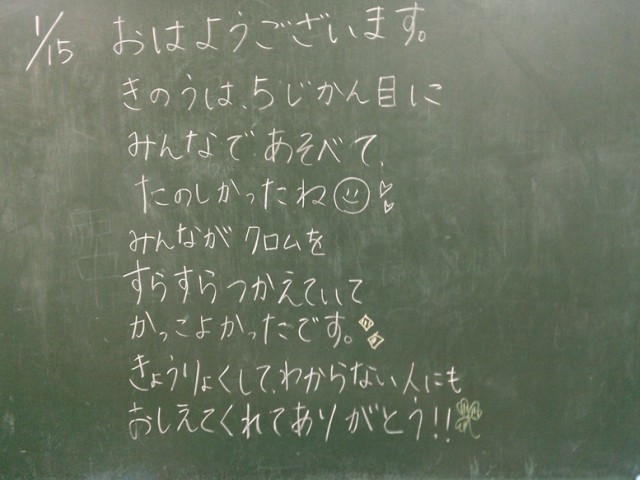 1/15 おはようございます。
きのうは、5じかん目に
みんなで あそべて、
たのしかったね
みんなが クロムを
すらすらつかえていて
かっこよかったです。
きょうりょくして、わからない人にも
おしえてくれてありがとう!!